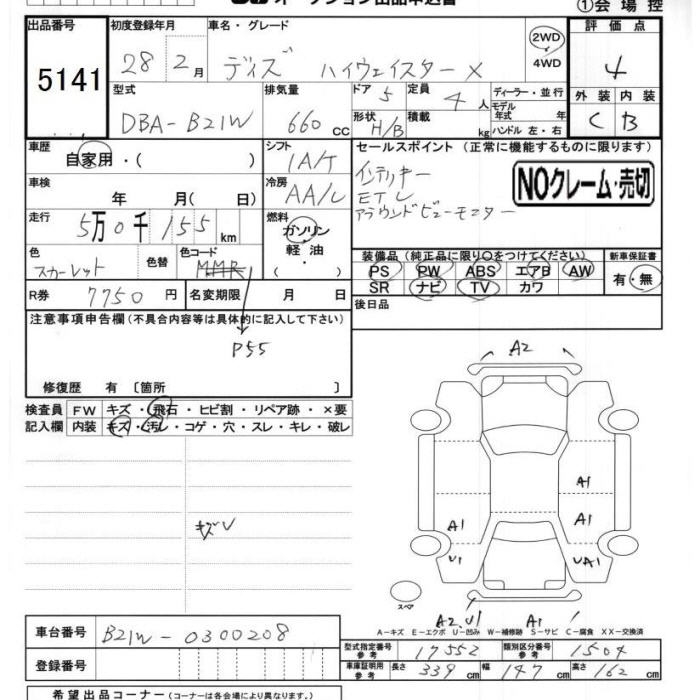 オークション出品申込書
①会場控
出品番号 初度登録年月 車名・グレード 評価点
5141 28年2月 デイズ ハイウェイスターX 2WD 4WD 4
型式 排気量 ドア 5 定員 4人 ディーラー・並行 外装 内装
DBA-B21W 660cc 形状 H/B 積載 kg モデル年式 年 ハンドル 左・右 C B
車歴 自家用・( ) シフト IA/T セールスポイント (正常に機能するものに限ります)
車検 年 月( 日) 冷房 AA/C インテリキー
ETC
アラウンドビューモニター
NOクレーム・売切
走行 5万0千155km 燃料 ガソリン 軽・油 ( )
色 スカーレット 色替 色コード MMR
装備品 (純正品に限り○をつけてください) 新車保証書
PS PW ABS エアB AW 有・無
SR ナビ TV カワ
R券 7750円 名変期限 月 日
後日品
注意事項申告欄(不具合内容等は具体的に記入して下さい)
P55
修復歴 有 〔箇所 〕
検査員 FW キズ・飛石・ヒビ割・リペア跡・×要
記入欄 内装 キズ・汚レ・コゲ・穴・スレ・キレ・破レ
キズU
A2
A1
A1 A1
U1 UA1
スペア
A2,U1 A1
A-キズ E-エクボ U-凹み W-補修跡 S-サビ C-腐食 XX-交換済
車台番号 B21W-0300208
型式指定番号 参考 17552 類別区分番号 参考 1504
登録番号
車庫証明用 参考 長さ 339cm 幅 147cm 高さ 162cm
希望出品コーナー (コーナーは各会場により異なります。)